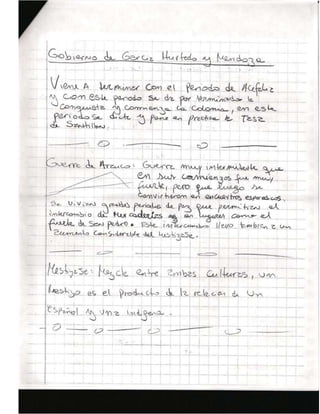 Gobierno de Garcia Hurtado y Mendoza
Viene A terminar con el Periodo de Acefalia
y con este periodo se da por terminado la
conquista y comienza la colonia, en este
periodo se dicta y pone en practica la Tasa
de Santillan.
Guerra de Arauco: Guerra muy intermitente que
en sus comienzos fue muy
fuerte, pero que luego se
convirtieron en encuentros esporadicos.
Se vivian grandes periodos de paz que permitian el
intercambio de mercaderias en lugares como el
fuerte de San pedro. Este intercambio llevo tambien a un
aumento considerable del Mestizaje.
Mestizaje: Mezcla entre ambas culturas, un
Mestizo es el producto de la relacion de un
español y una indigena.